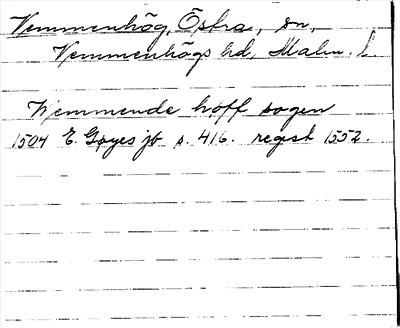 Vemmenhög, Östra, sn,
Vemmenhögs hd, Malm. l
Wemmende hoff sogen
1504 E. Gøyes jb s. 416. regist 1552.